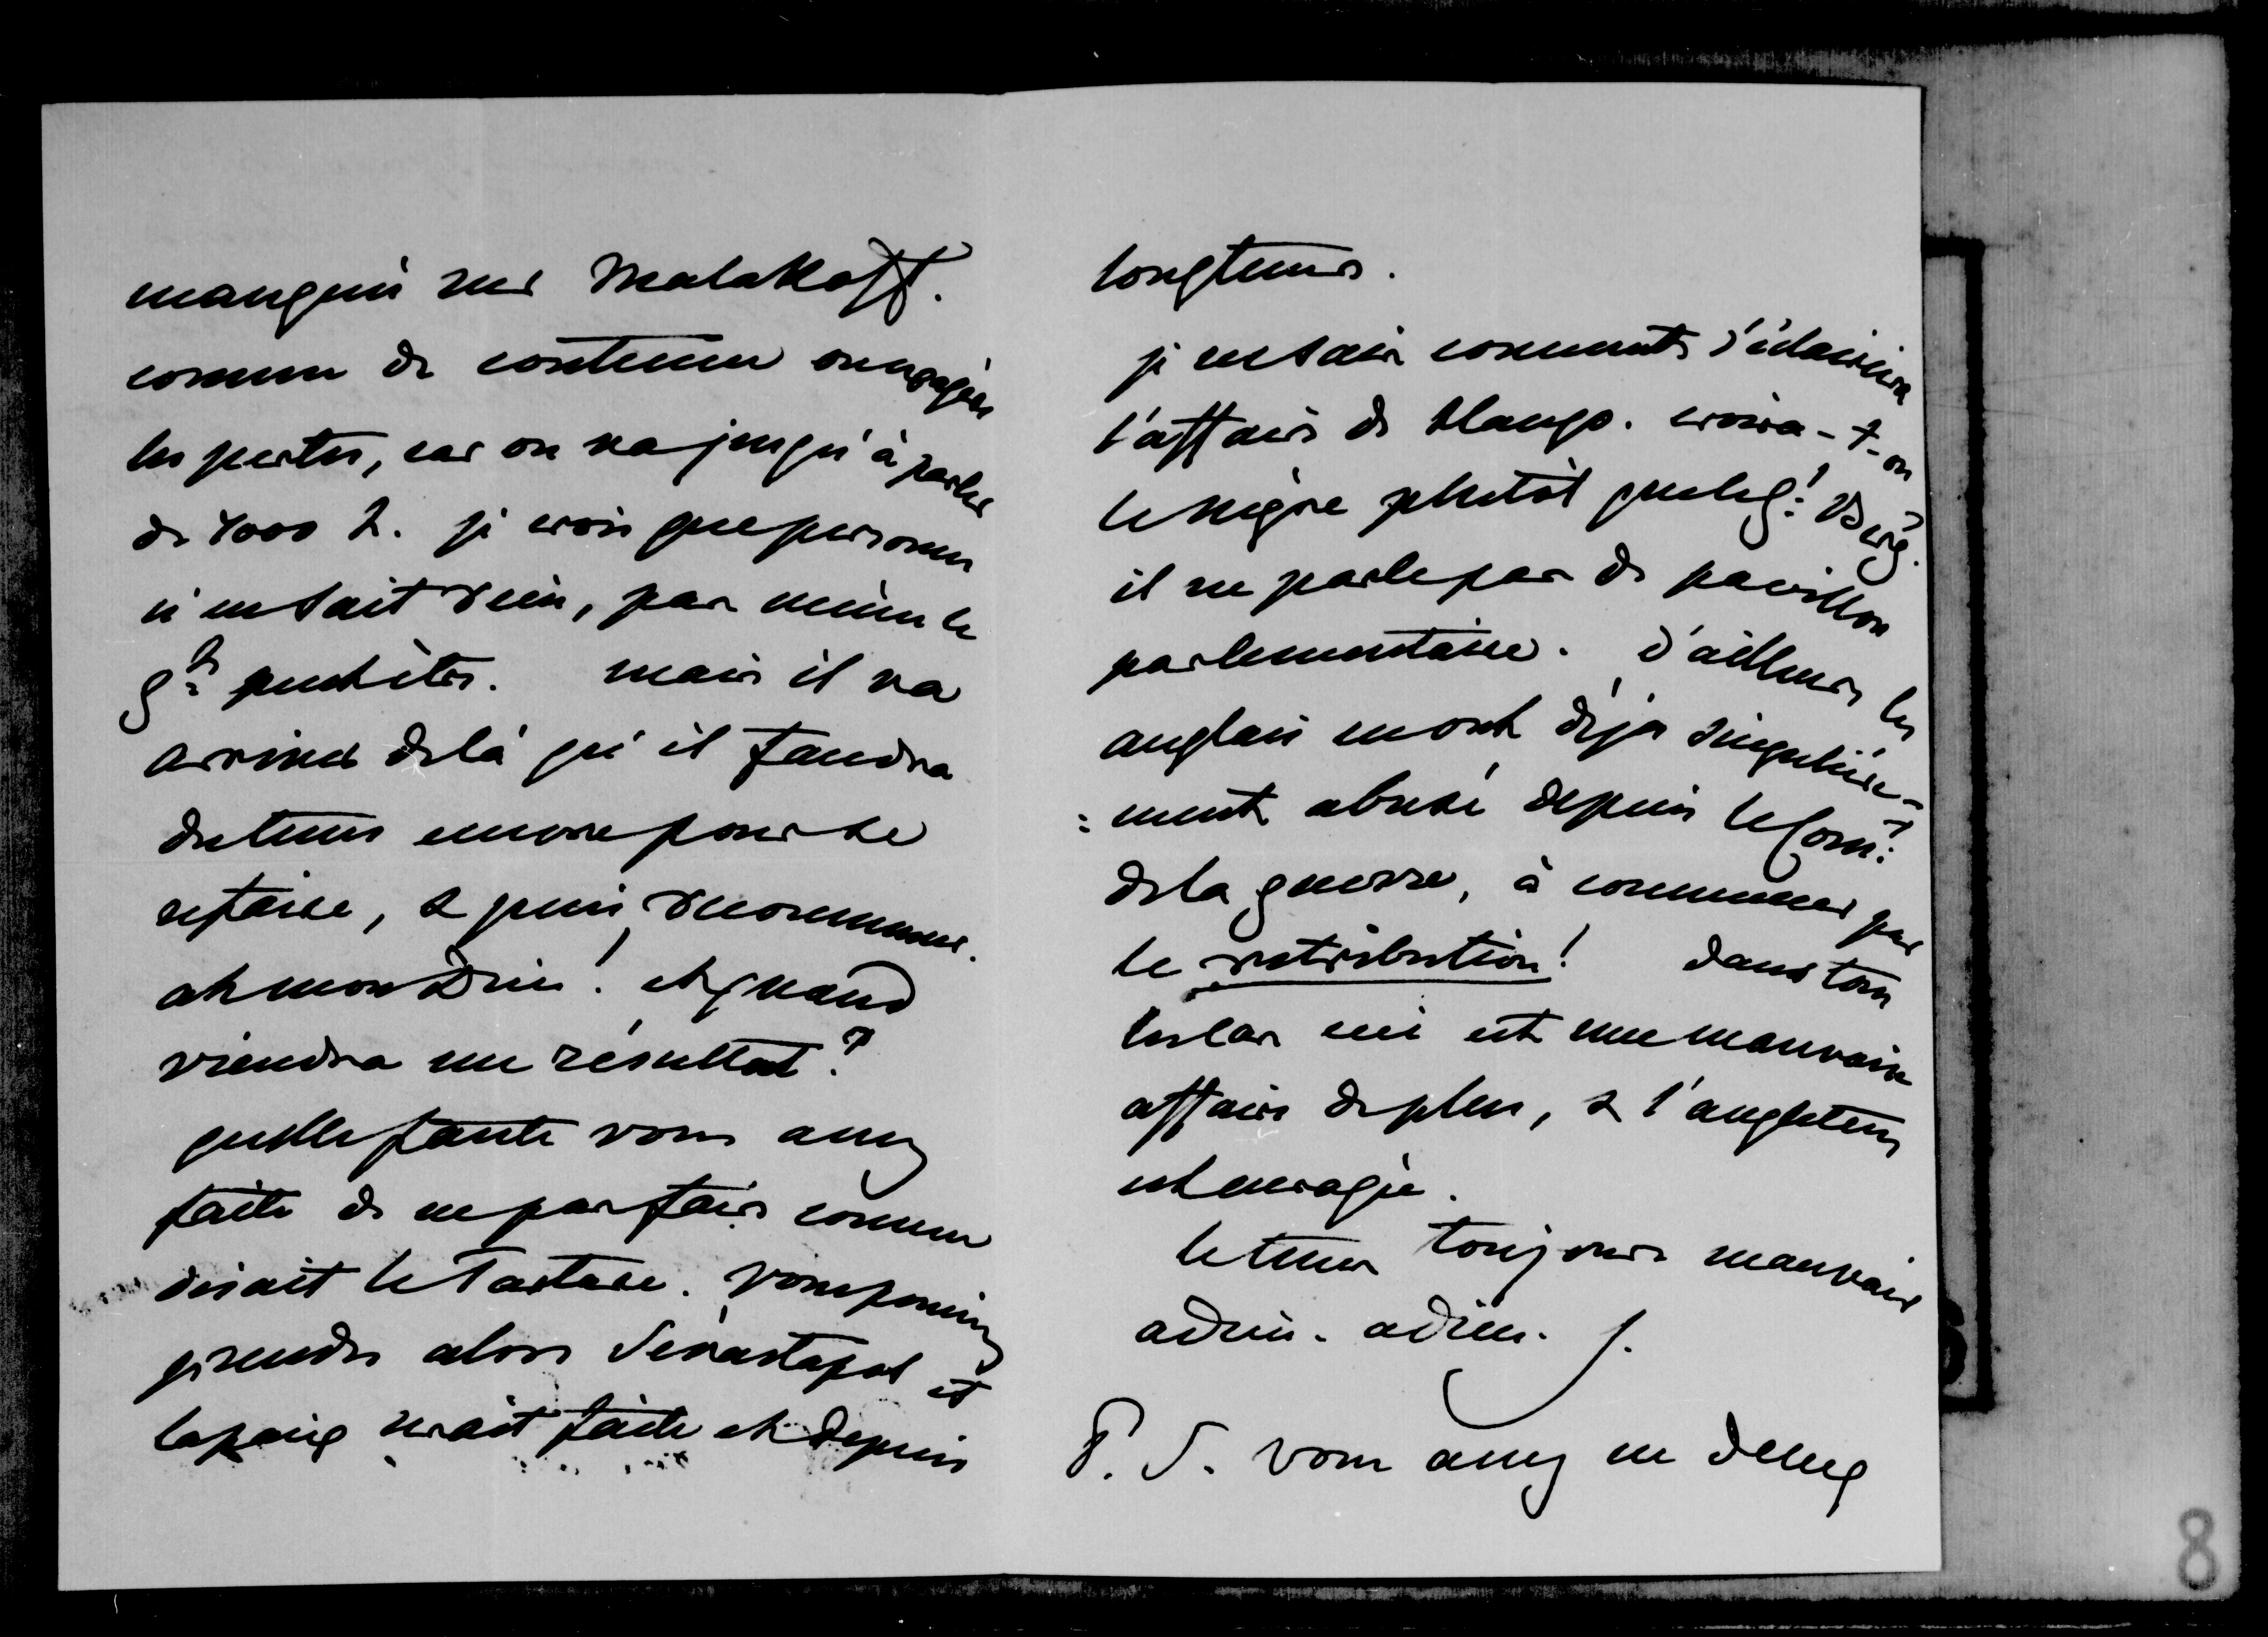 manqué sur Malakoff.
comme de coutume on exagère
les pertes, car on va jusqu'à parler
de 4000 h. je crois que personne
n'en sait rien, pas même le
g^al peut être. mais il va
arriver delà qu'il faudra
du tems encore pour se
refaire, & puis, recommencer.
ah mon Dieu ! et quand
viendra un résultat ?
quelle faute vous avez
faite de ne pas faire comme
disait le Tartare. vous pouviez
prendre alors Sévastopol et
la paix serait faite et depuis
longtems.
je ne sais comment s'éclaircira
l'affaire de Hango. croira-t-on
le nègre plutôt que le g^l Berg ?
il ne parle pas de pavillon
parlementaire. d'ailleurs les
anglais en ont déja singulière-
=ment abusé depuis le Com^t
de la guerre, à commencer par
le retribution ! dans tous
les cas ceci est une mauvaise
affaire de plus, & l'angleterre
est enragée.
le tems toujours mauvais
adieu. adieu. J.
P. S. vous avez en deux
8